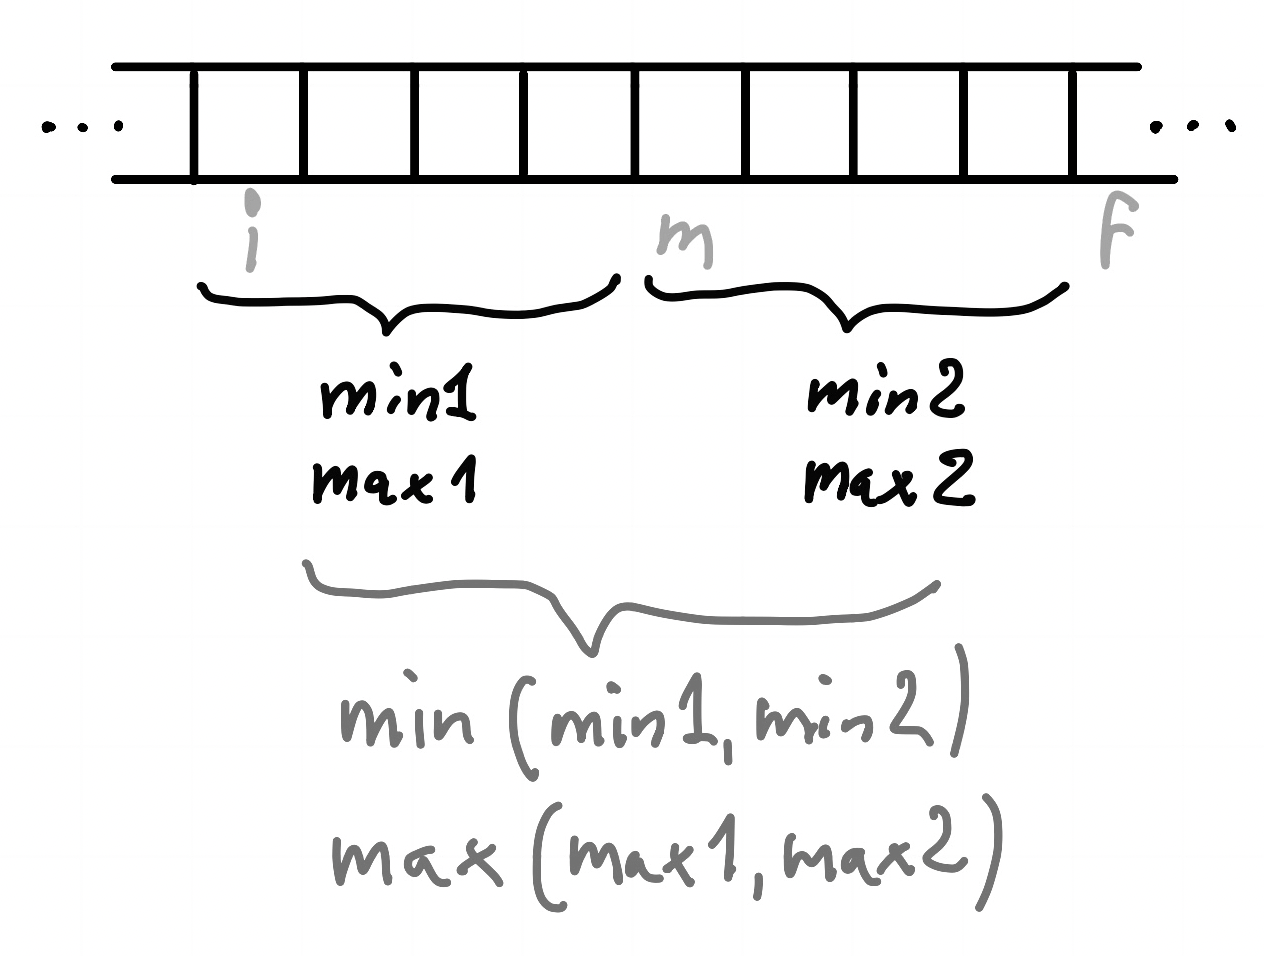 ... ...
i m f
min1 min2
max1 max2
min (min1, min2)
max (max1, max2)